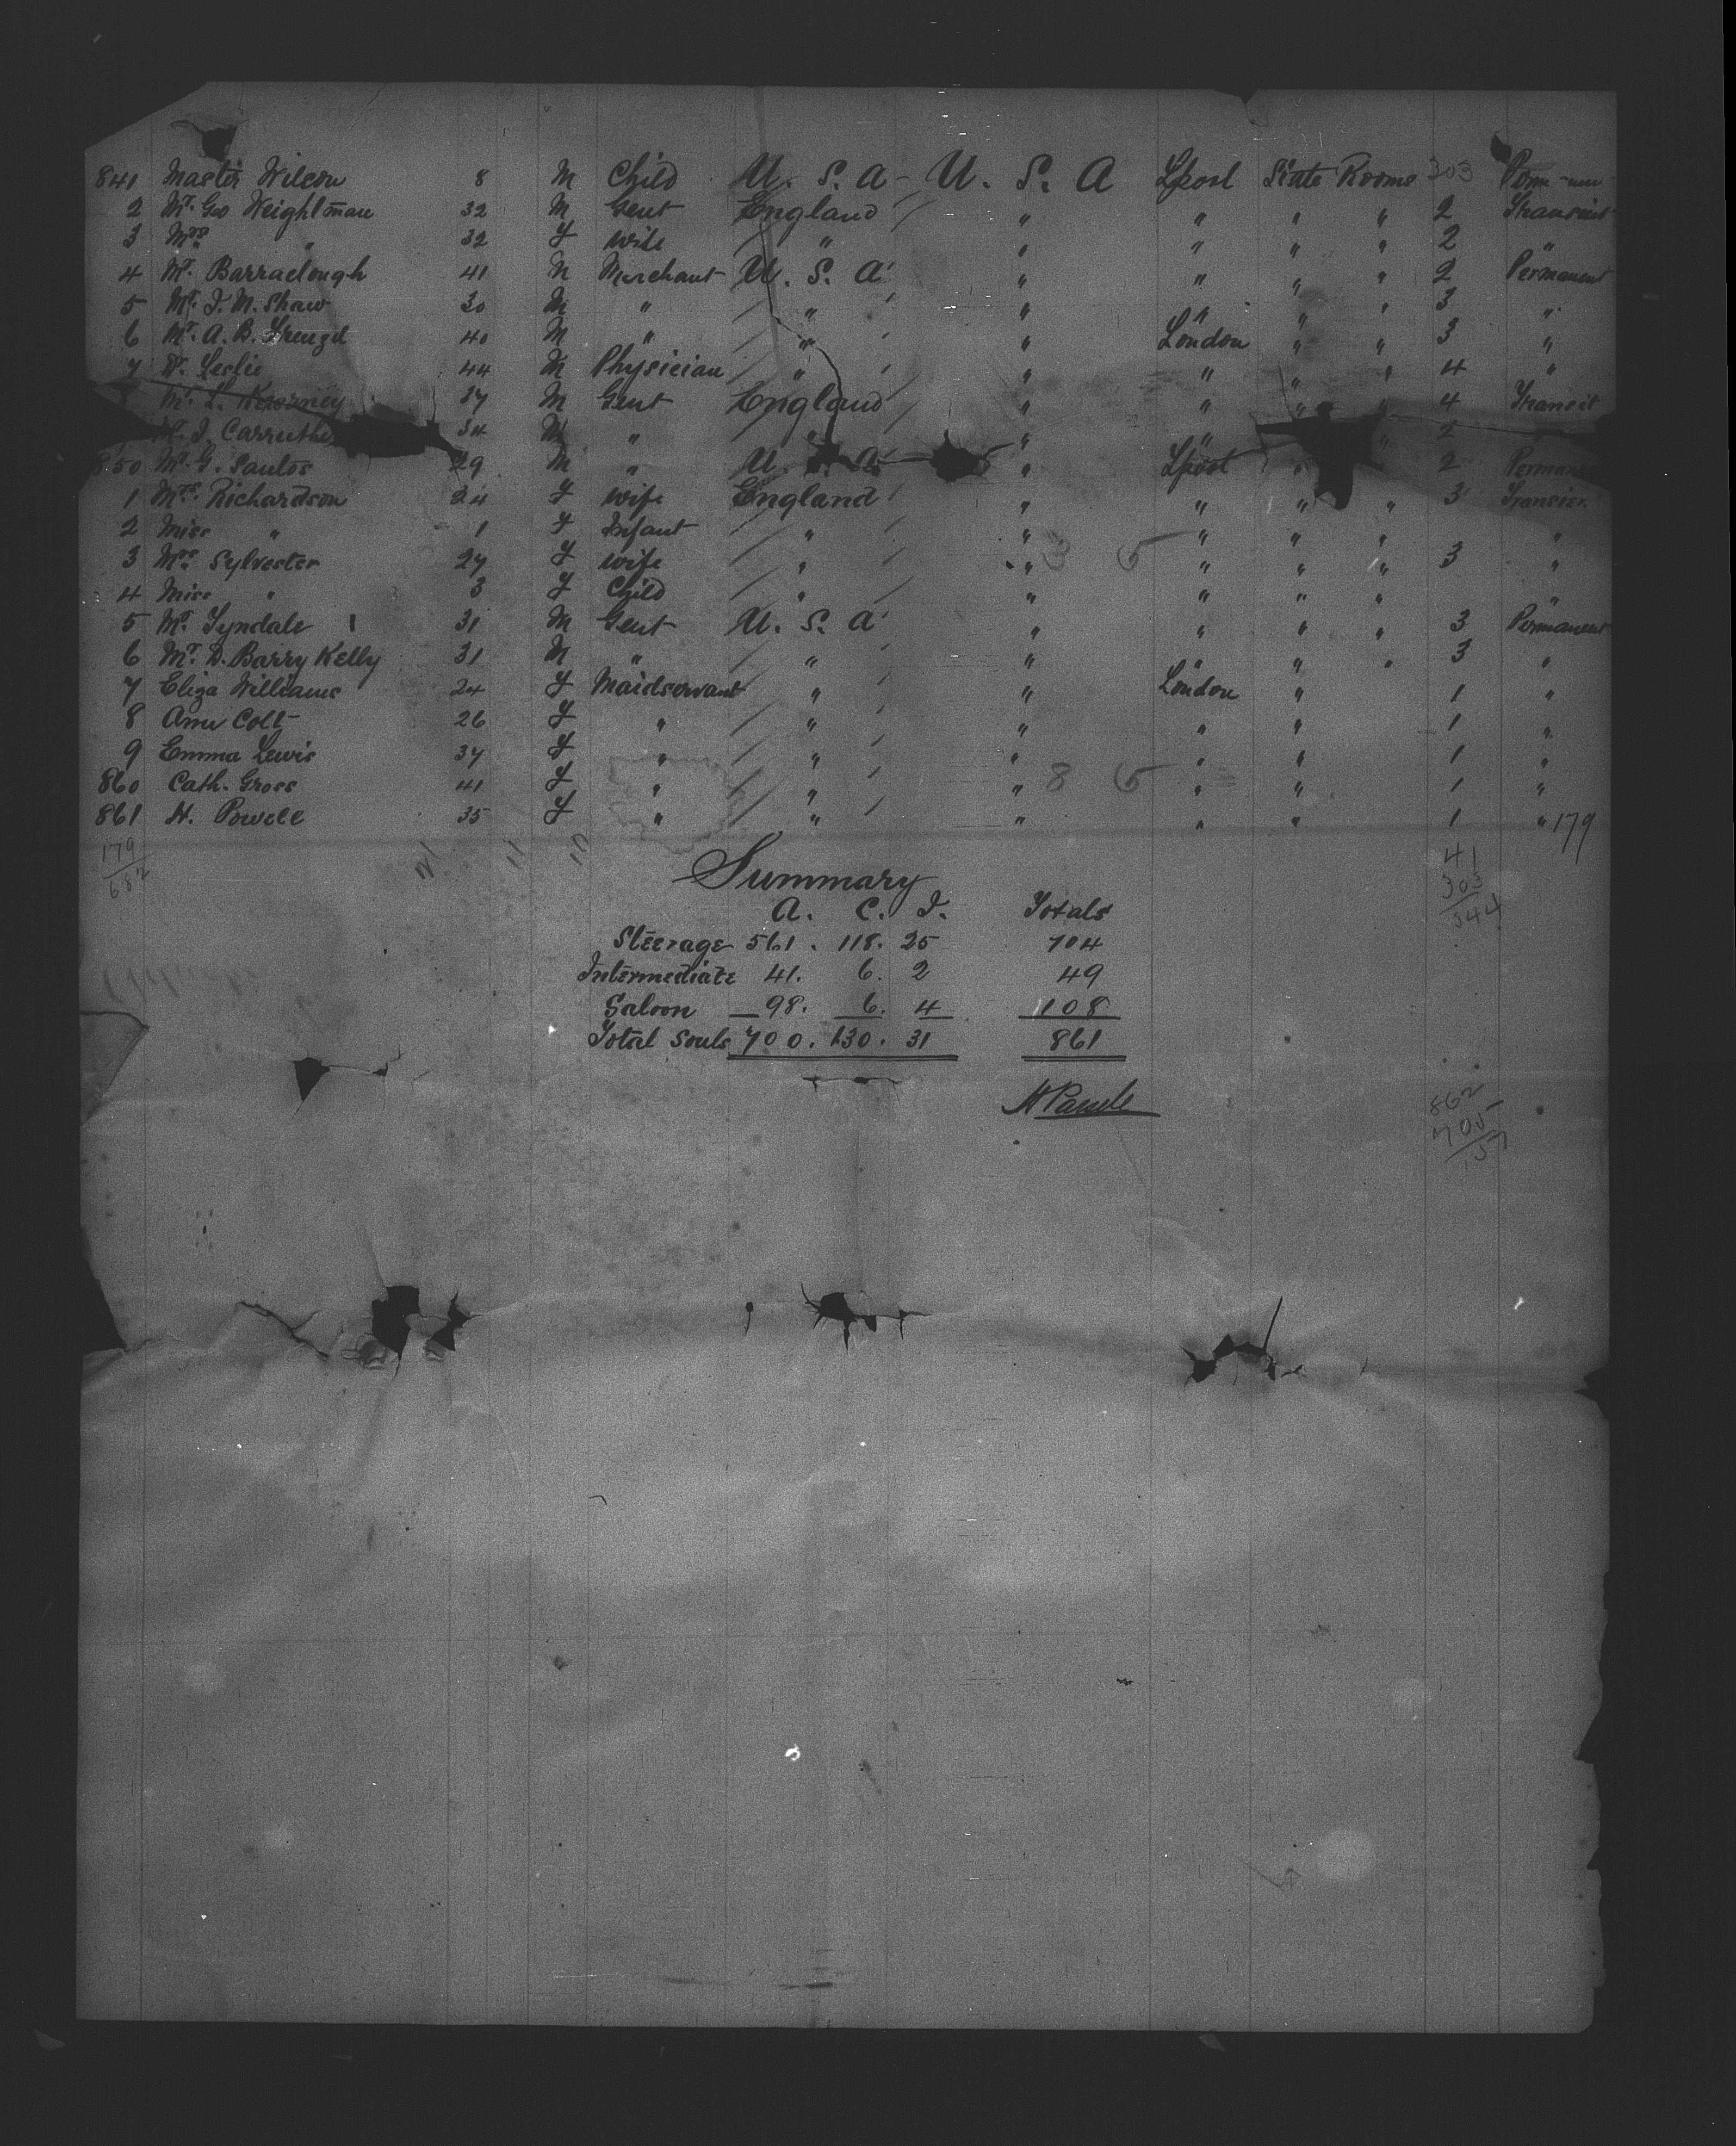 841 Master Wilcow 8 M Child U. S. A - U. S. A Lpool State Rooms 303 Perm-nen
2 Mr. Geo Weightman 32 M Gent England " " " " 2 Transient
3 Mrs " 32 F wife " " " " " 2 "
4 Mr. Barraclough 41 M Merchant U. S. A " " " " 2 Permanent
5 Mr. J. M. Shaw 30 M " " " " " " 3 "
6 Mr. A. B. 40 M " " " London " " 3 "
7 Dr. Leslie 44 M Physician " " " " " 4 "
Mr. L. Kearney 37 M Gent England " " " " 4 Transit
Mr. J. Carruthe 34 M " " " " " 2
850 Mr. G. Santos 29 M " U. S. A " Lpool " 2 Perman
1 Mrs. Richardson 24 F wife England " " " " 3 Transien
2 Miss " 1 F Infant " " " " " "
3 Mrs. Sylvester 27 F wife " " 3 5 " " " 3 "
4 Miss " 3 F Child " " " " " "
5 Mr. Tyndale 31 M Gent U. S. A " " " " 3 Permanent
6 Mr. D. Barry Kelly 31 M " " " " " " 3 "
7 Eliza Williams 24 F Maidservant " " London " 1 "
8 Ann Colt 26 F " " " " " 1 "
9 Emma Lewis 37 F " " " " " 1 "
860 Cath. Gross 41 F " " " 8 5 " " 1 "
861 H. Powell 35 F " " " " " 1 " 179
179
682
41
303
344
Summary
A. C. I. Totals
Steerage 561. 118. 25 704
Intermediate 41. 6. 2 49
Saloon 98. 6. 4 108
Total Souls 700. 130. 31 861
862
705
157